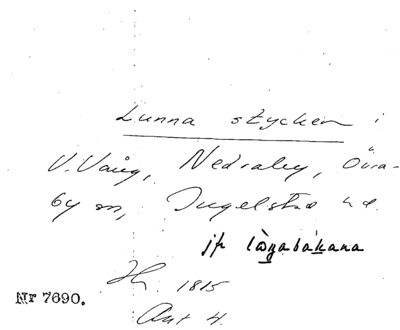 Lunna stycken i
V. Vång, Nedraby, Övra-
by sn, Ingelstad hd.
jfr
1815
Nr 7690.
Akt 4.